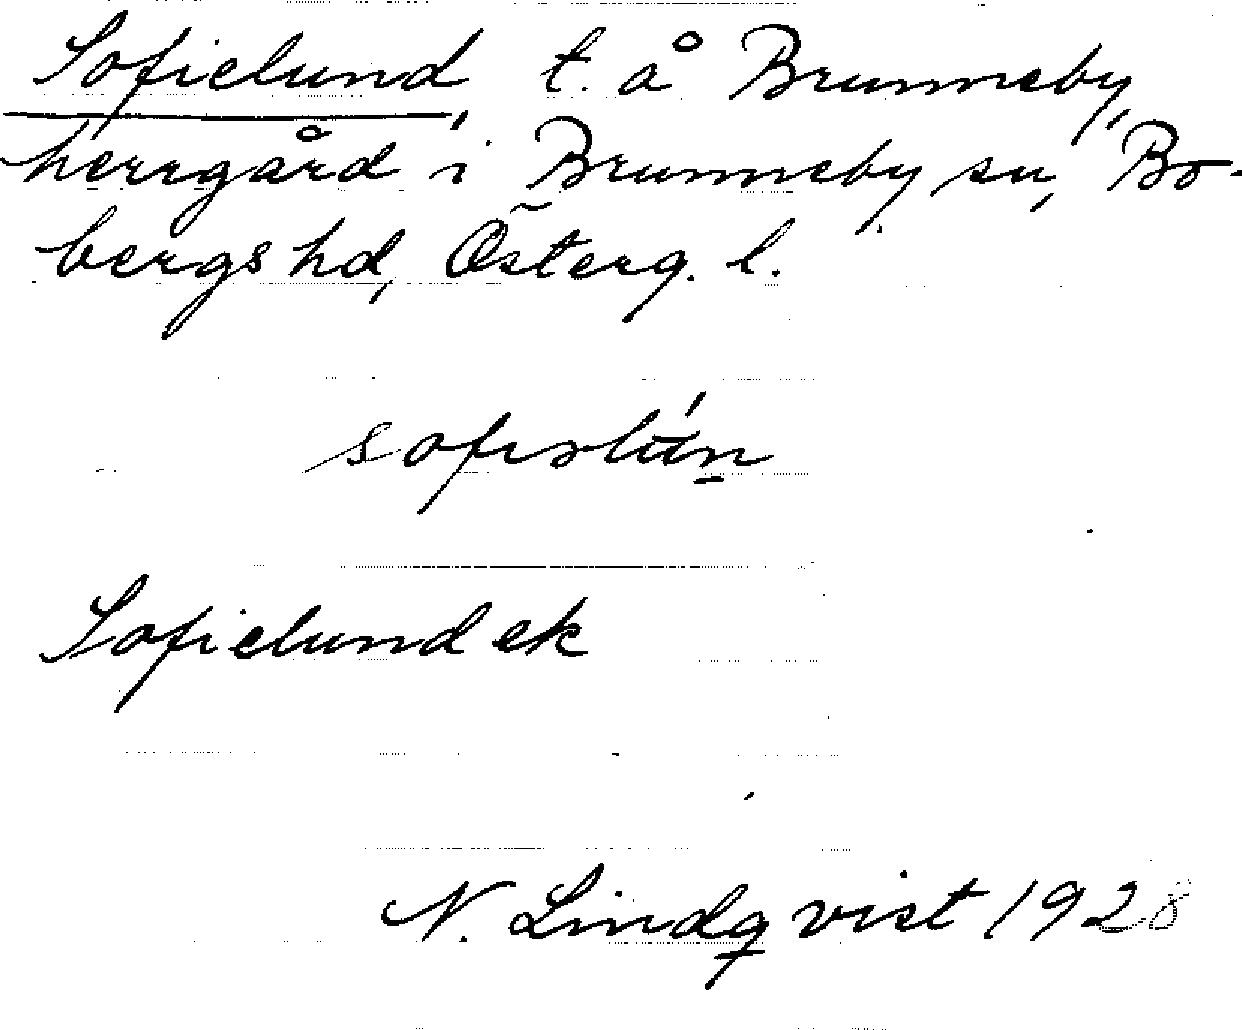 Sofielund, t. å Brunneby,
herrgård i Brunneby sn, Bo-
bergs hd, Österg. l.
Sofielund ek
N. Lindqvist 1928